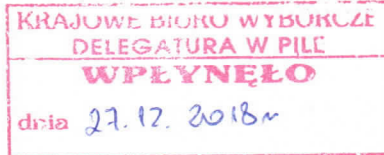 KRAJOWE BIURO WYBORCZE
DELEGATURA W PILE
WPŁYNĘŁO
dnia 27.12. 2018r